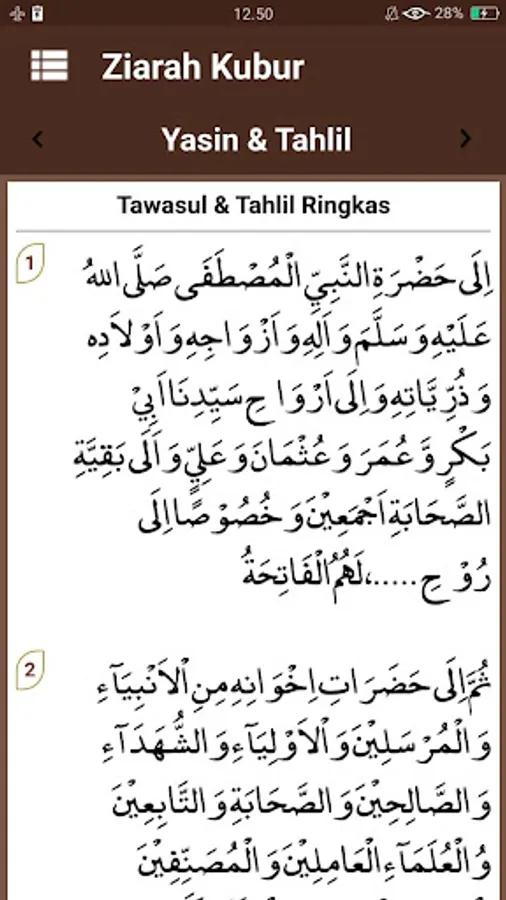 12.50
28%
Ziarah Kubur
Yasin & Tahlil
Tawasul & Tahlil Ringkas
1
اِلَى حَضْرَةِ النَّبِيِّ الْمُصْطَفَى صَلَّى اللهُ
عَلَيْهِ وَسَلَّمَ وَآلِهِ وَاَزْوَاجِهِ وَاَوْلَادِهِ
وَذُرِّيَّاتِهِ وَاِلَى اَرْوَاحِ سَيِّدِنَا اَبِيْ
بَكْرٍ وَّعُمَرَ وَعُثْمَانَ وَعَلِيٍّ وَاَلَى بَقِيَّةِ
الصَّحَابَةِ اَجْمَعِيْنَ وَخُصُوْصًا اِلَى
رُوْحِ.....، لَهُمُ الْفَاتِحَةُ
2
ثُمَّ اِلَى حَضَرَاتِ اِخْوَانِهِ مِنِ الْاَنْبِيَآءِ
وَالْمُرْسَلِيْنَ وَالْاَوْلِيَآءِ وَالشُّهَدَآءِ
وَالصَّالِحِيْنَ وَالصَّحَابَةِ وَالتَّابِعِيْنَ
وُالْعُلَمَآءِ الْعَامِلِيْنَ وَالْمُصَنِّفِيْنَ